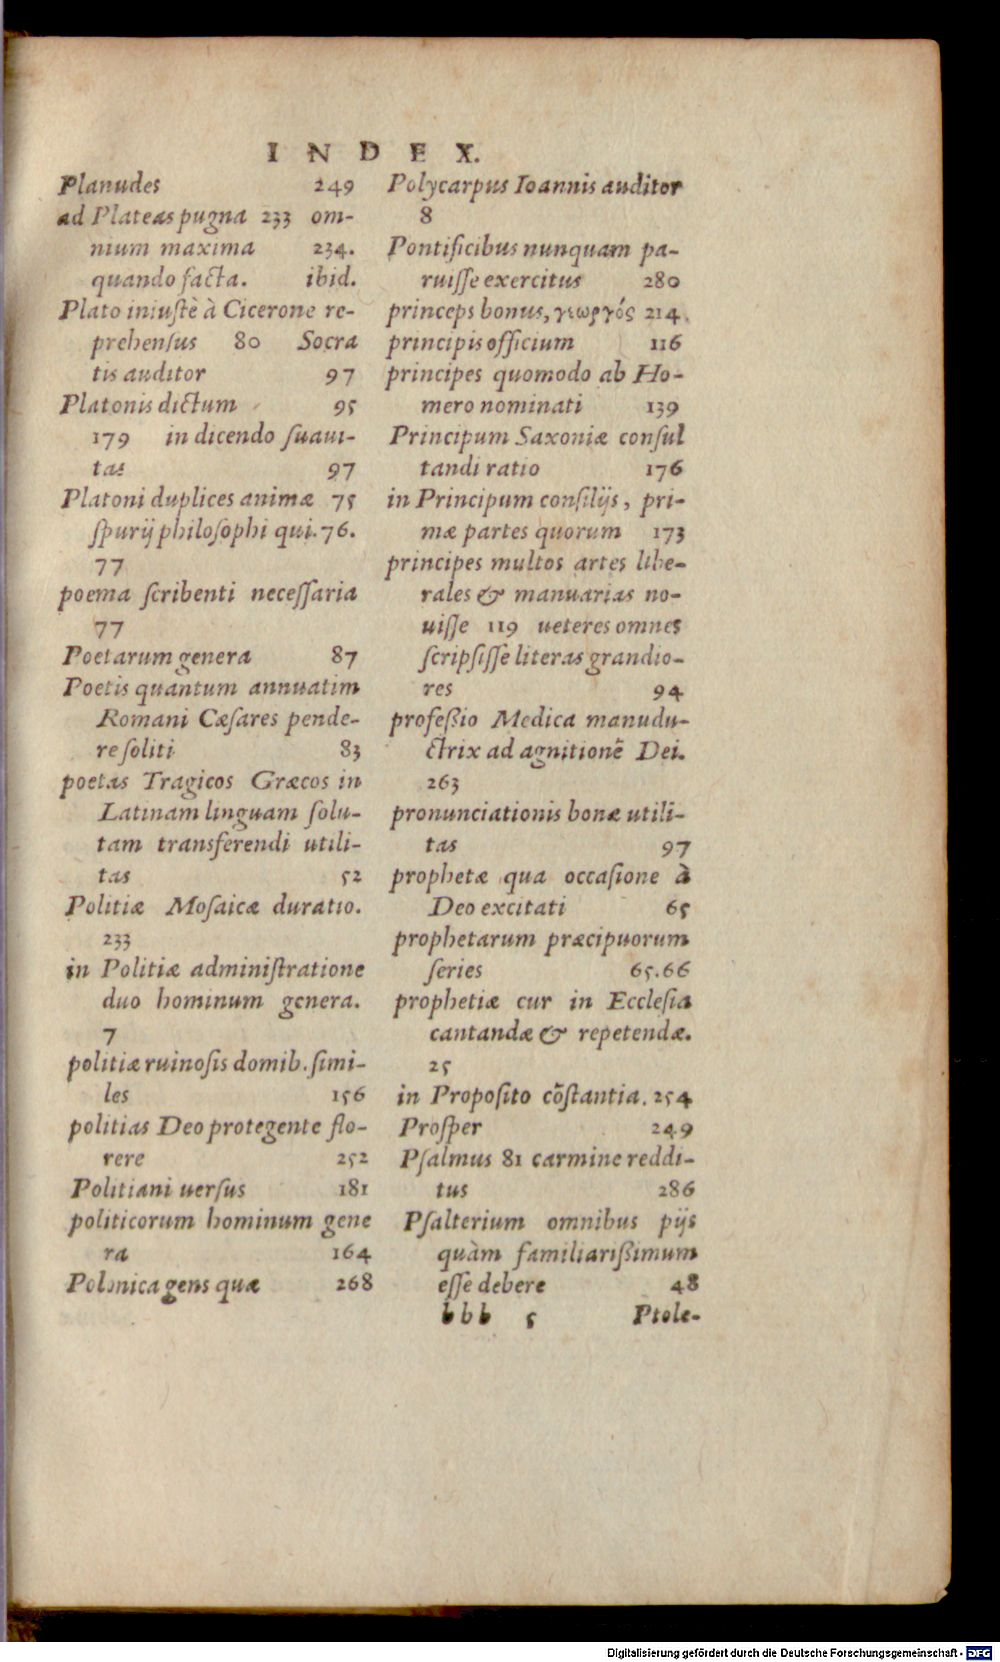 INDEX.
Planudes 249
ad Plateas pugna 233 om-
nium maxima 234.
quando facta. ibid.
Plato iniustè à Cicerone re-
prehensus 80 Socra
tis auditor 97
Platonis dictum 95
179 in dicendo suaui-
tas 97
Platoni duplices animæ 75
spurij philosophi qui. 76.
77
poema scribenti necessaria
77
Poetarum genera 87
Poetis quantum annuatim
Romani Cæsares pende-
re soliti 83
poetas Tragicos Græcos in
Latinam linguam solu-
tam transferendi utili-
tas 52
Politiæ Mosaicæ duratio.
233
in Politiæ administratione
duo hominum genera.
7
politiæ ruinosis domib. simi-
les 156
politias Deo protegente flo-
rere 252
Politiani uersus 181
politicorum hominum gene
ra 164
Polonica gens quæ 268
Polycarpus Ioannis auditor
8
Pontificibus nunquam pa-
ruisse exercitus 280
princeps bonus, γεωργός 214.
principis officium 116
principes quomodo ab Ho-
mero nominati 139
Principum Saxoniæ consul
tandi ratio 176
in Principum consilijs, pri-
mæ partes quorum 173
principes multos artes libe-
rales & manuarias no-
uisse 119 ueteres omnes
scripsisse literas grandio-
res 94
profeßio Medica manudu-
ctrix ad agnitionẽ Dei.
263
pronunciationis bonæ utili-
tas 97
prophetæ qua occasione à
Deo excitati 65
prophetarum præcipuorum
series 65.66
prophetiæ cur in Ecclesia
cantandæ & repetendæ.
25
in Proposito cõstantia. 254
Prosper 249
Psalmus 81 carmine reddi-
tus 286
Psalterium omnibus pijs
quàm familiarißimum
esse debere 48
bbb 5 Ptole-
Digitalisierung gefördert durch die Deutsche Forschungsgemeinschaft - DFG